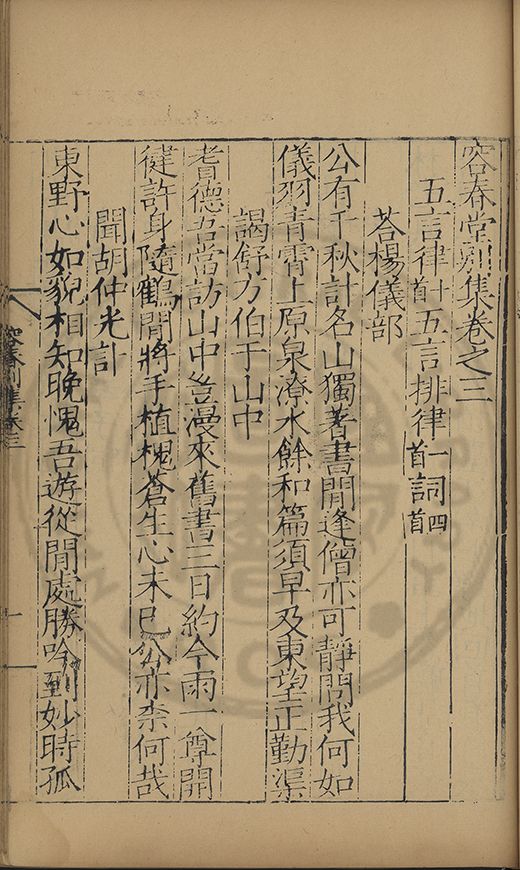 容春堂別集卷之三
五言律十首五言排律一首詞四首
荅楊儀部
公有千秋計名山獨著書閒逢僧亦可靜問我何如
儀羽青霄上原泉潦水餘和篇須早及東望正勤渠
謁舒方伯于山中
耆德吾當訪山中豈漫來舊書三日約今雨一尊開
健許身隨鶴閒將手植槐蒼生心未已公亦柰何哉
聞胡仲光訃
東野心如貌相知晚愧吾遊從閒處勝吟到妙時孤
容春別集卷三
一